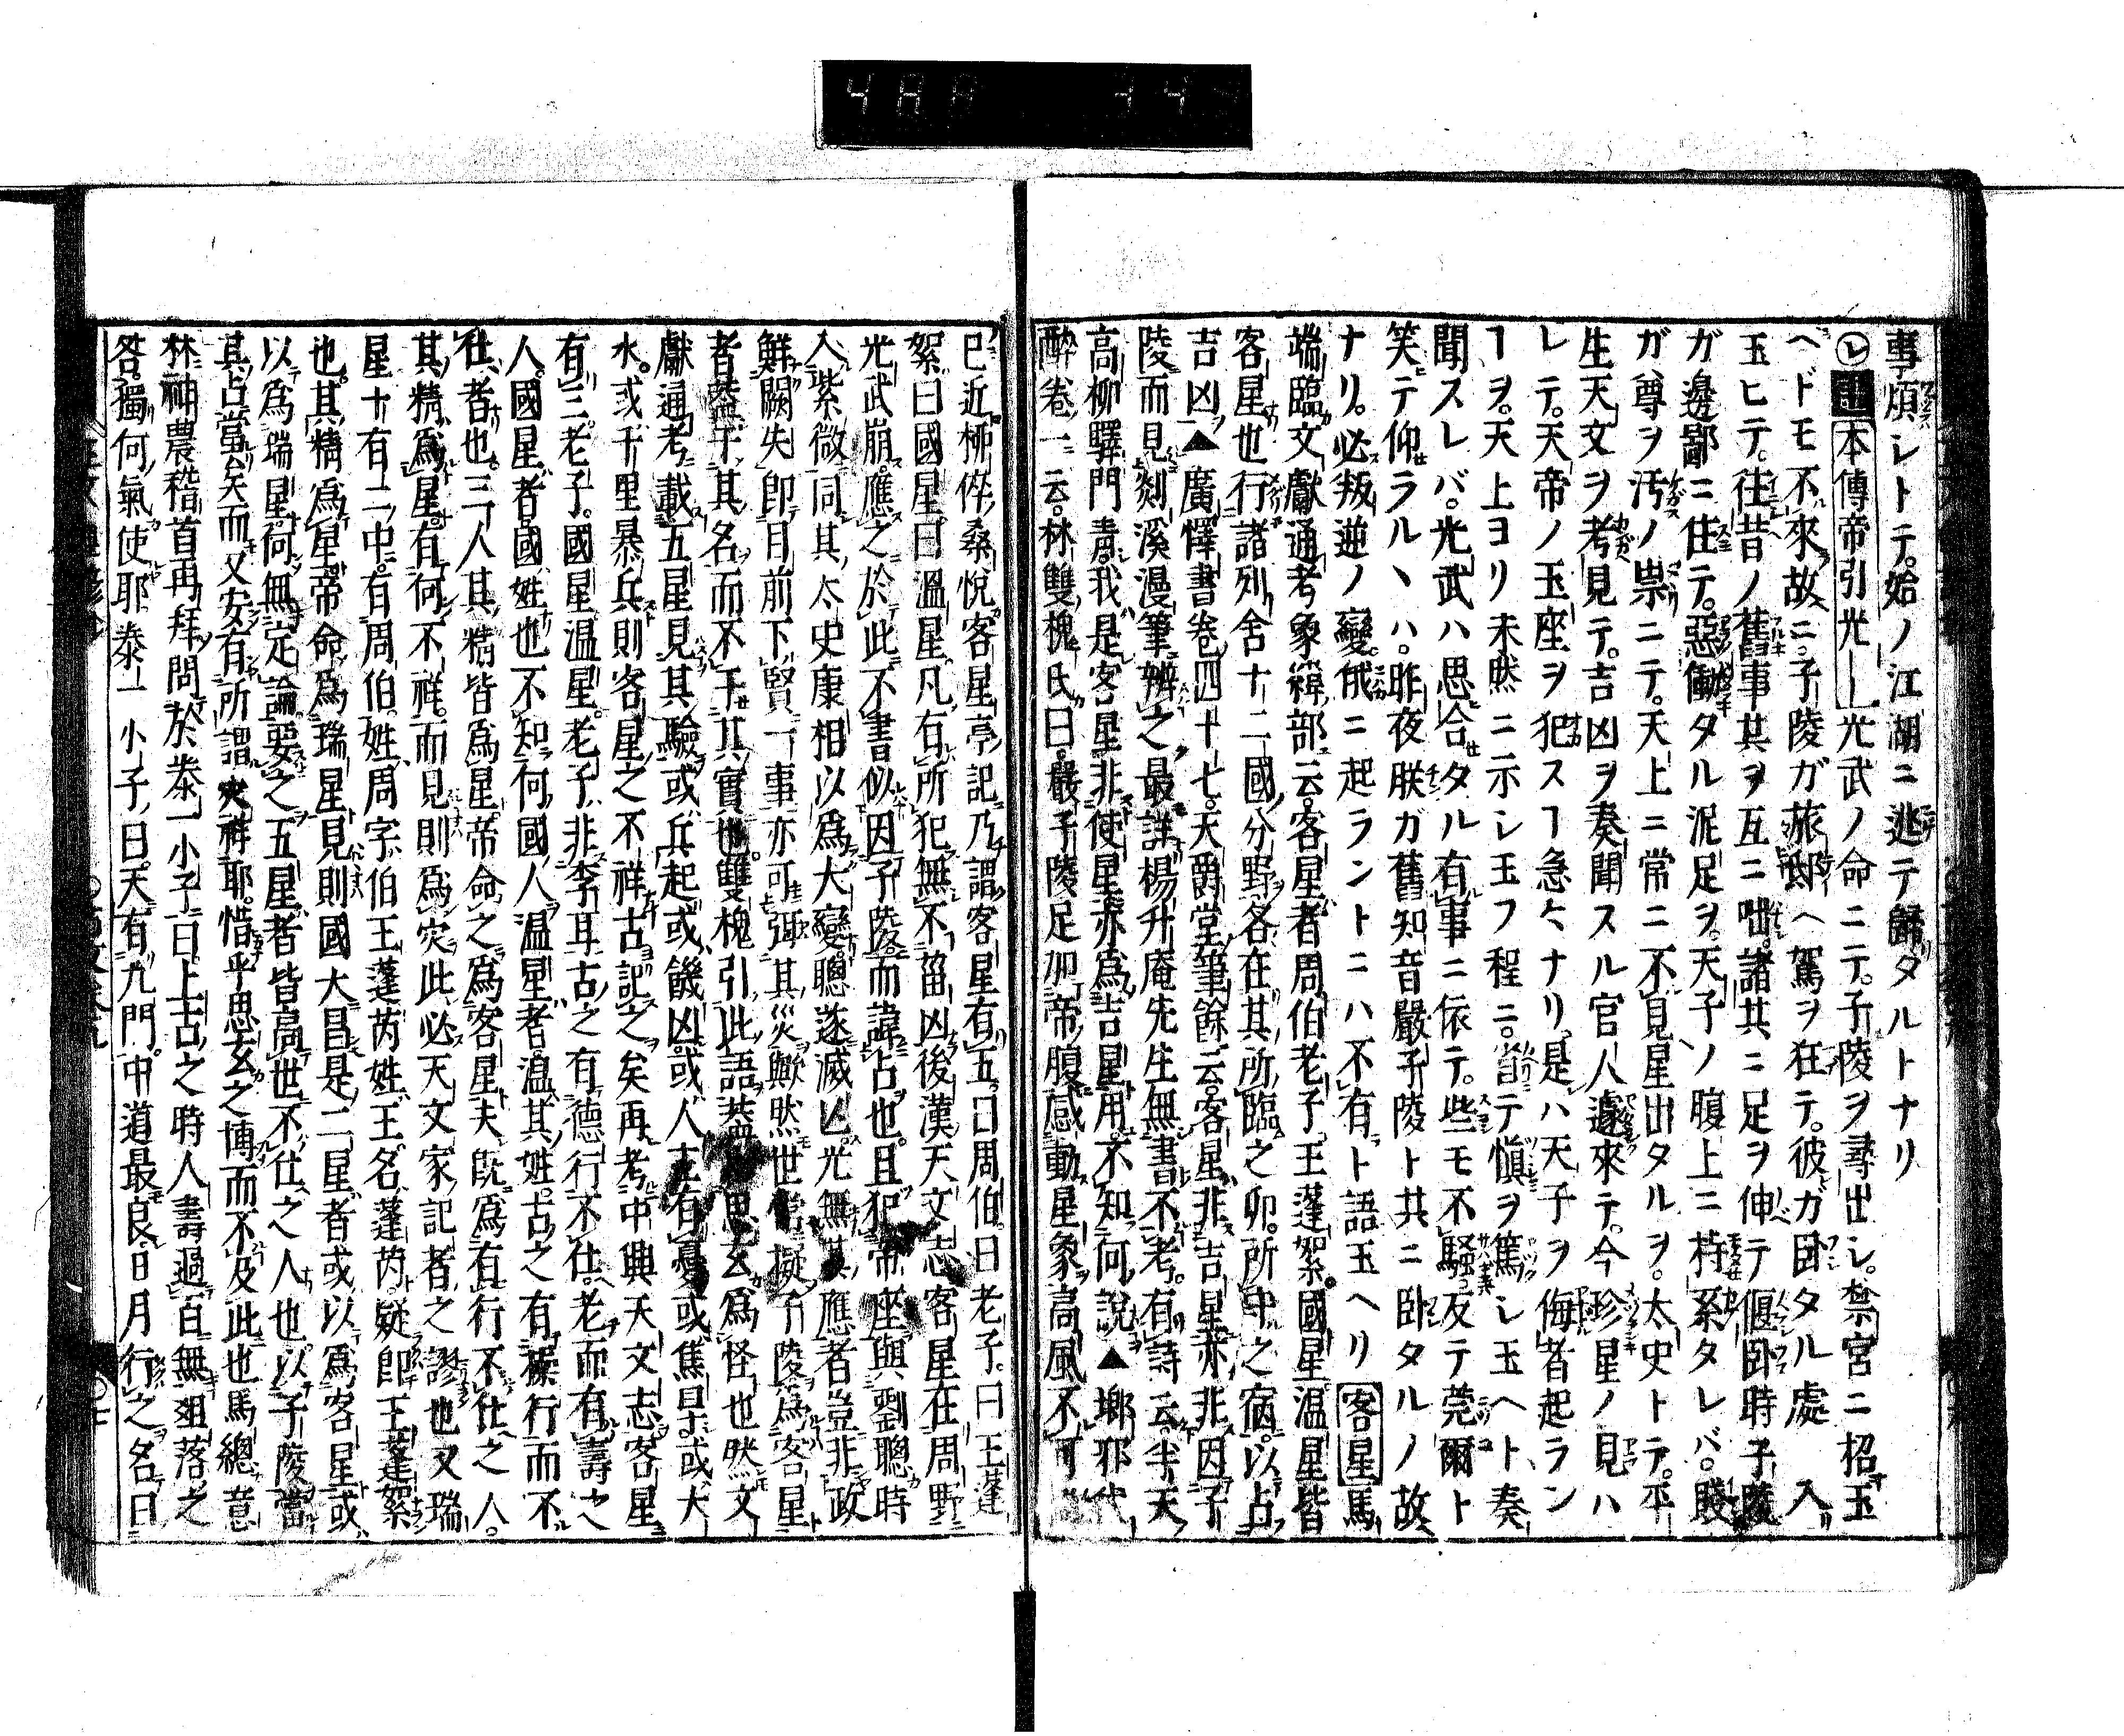 事煩シトテ。始ノ江湖ニ逃テ歸タルトナリ
本傳帝引光｜光武ノ命ニテ。子陵ヲ尋出シ。禁宮ニ招玉
ヘドモ不來故ニ。子陵ガ旅邸ヘ駕ヲ狂テ。彼ガ臥タル處ヘ入
玉ヒテ。往昔ノ舊事其ヲ互ニ咄。諸其ニ足ヲ伸テ偃卧時子陵
ガ邊鄙ニ住テ。惡働タル泥足ヲ。天子ノ腹上ニ持系タレバ。賤
ガ尊ヲ汚ノ祟ニテ。天上ニ常ニ不見星出タルヲ。太史トテ。平
生天文ヲ考見テ。吉凶ヲ奏聞スル官人遽來テ。今珍星ノ見ハ
レテ。天帝ノ玉座ヲ犯スヿ急々ナリ。是ハ天子ヲ侮者起ラン
ヿヲ。天上ヨリ未然ニ示シ玉フ程ニ。テ愼ヲ篤シ玉ヘト奏
聞スレバ。光武ハ思合タル有事ニ依テ。些モ不騷反テ莞爾ト
笑テ仰ラルヽハ。昨夜朕ガ舊知音嚴子陵ト其ニ卧タルノ故
ナリ。必叛逆ノ變。俄ニ起ラントニハ不有ト語玉ヘリ客星馬
端臨文獻通考象緯部云。客星者周伯老子。王蓬絮。國星温星皆
客星也行諸列舍十二國分野各在其所臨之卯。所中之宿。以占
吉凶▲廣懌書卷四十七。天爵堂筆餘云。客星非吉星亦非因子
陵而見剡溪漫筆辨之最詳楊升庵先生無書不考。有詩云半天
高柳驛門青。我是客星非使星亦為吉星用。不知何說▲瑯邪代
醉卷一云。林雙槐氏曰。嚴子陵足加帝腹感動星象高風不可
已近柳倅桑悅客星亭記乃謂客星有五曰周伯。曰老子。曰王蓬
絮曰國星。曰溫星。凡有所犯無不菑凶後漢天文志客星在周野
光武崩。應之於此不書似因子陵。而諱占也。且犯帝座與劉聰時
入紫微同其太史康相以爲大變聰遂滅亡。光無其應者豈非政
鮮闕失即目前下賢一事亦可弭其災歟然世常擬子陵爲客星
者蓋于其名而不于其實也。雙槐引此語蓋思玄爲怪也然文
獻通考載五星見其驗或兵起或饑凶。或人主有憂或焦旱。或大
水。或千里暴兵則客星之不祥古記之矣再考中興天文志客星
有三老子。國星温星。老子非李耳古之有德行不仕。老而有壽之
人。國星者國姓也不知何國人温星者。温其姓。古之有操行而不
仕者也。三人其精皆爲星帝命之爲客星夫既爲有行不仕之人。
其精爲星。有何不祥。而見則爲灾此必天文家記者之謬也又瑞
星十有二中。有周伯。姓周字伯王蓬芮姓王。名蓬芮。疑即王蓬絮
也。其精爲星帝命爲瑞星見則國大昌是二星者或以爲客星或
以爲瑞星。何無定論。要之五星者皆高世不仕之人也。以子陵當
其占當矣而又安有所謂灾祥耶。惜乎思玄之博而不及此也馬總意
林神農稽首再拜問於泰一小子曰上古之時人壽過百無殂落之
咎獨何氣使耶泰一小子曰。天有九門。中道最良日月行之名曰